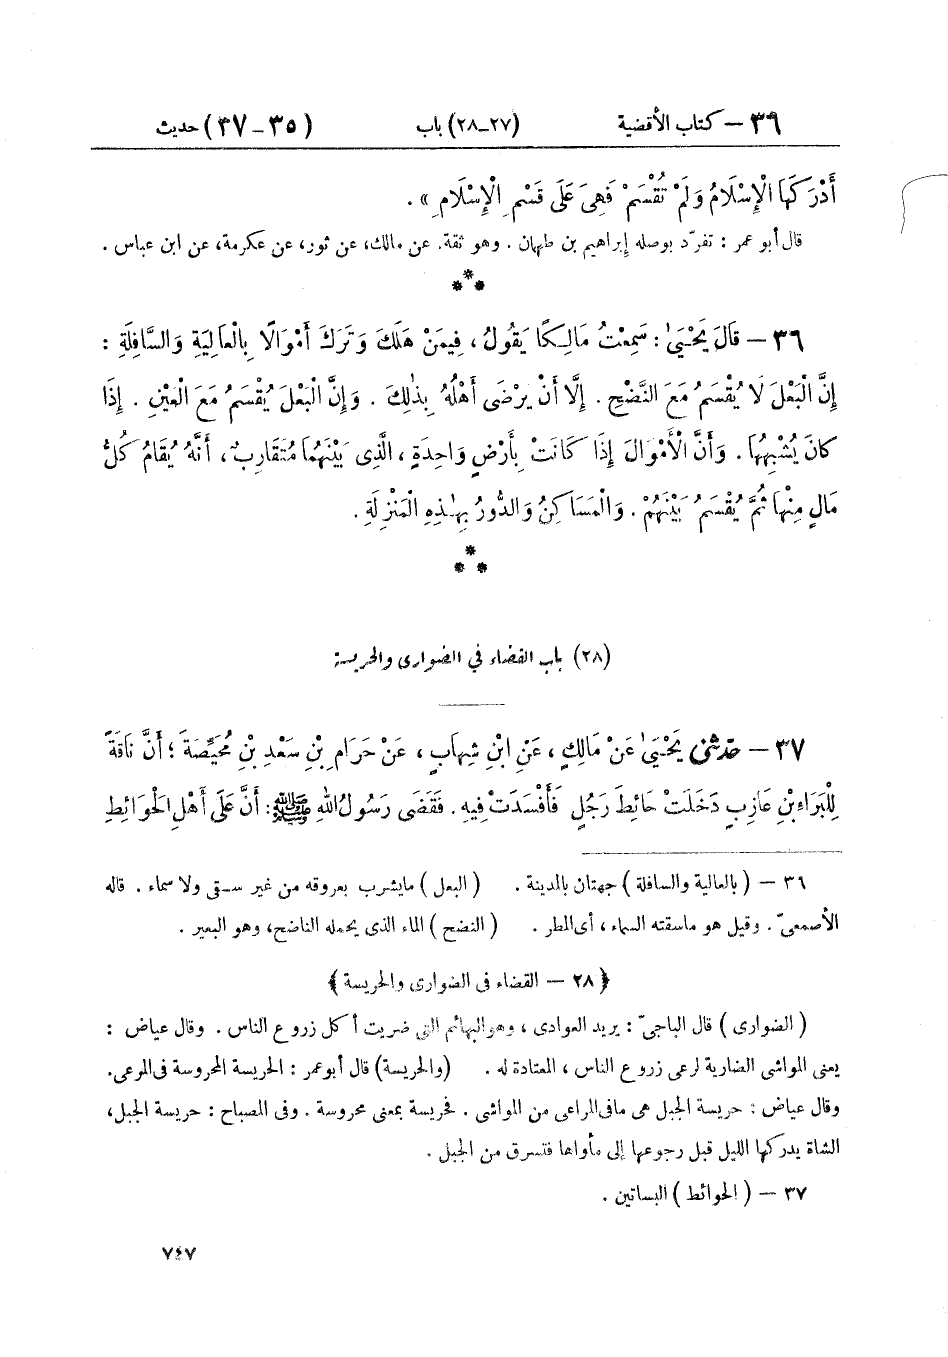 ٣٩ – كتاب الأقضية (٢٧–٢٨) باب (٣٥–٣٧) حديث
أَدْرَكَهَا الْإِسْلَامُ وَلَمْ تُقْسَمْ فَهِىَ عَلَى قَسْمِ الْإِسْلَامِ» .
قال أبو عمر : تفرّد بوصله إبراهيم بن طهمان . وهو ثقة . عن مالك، عن ثور، عن عكرمة، عن ابن عباس .
***
٣٦ – قَالَ يَحْيَىٰ : سَمِعْتُ مَالِكًا يَقُولُ ، فِيمَنْ هَلَكَ وَتَرَكَ أَمْوَالًا بِالْعَالِيَةِ وَالسَّافِلَةِ :
إِنَّ الْبَعْلَ لَا يُقْسَمُ مَعَ النَّضْحِ . إِلَّا أَنْ يَرْضَى أَهْلُهُ بِذٰلِكَ . وَإِنَّ الْبَعْلَ يُقْسَمُ مَعَ الْعَيْنِ . إِذَا
كَانَ يُشْبِهُهَا . وَأَنَّ الْأَمْوَالَ إِذَا كَانَتْ بِأَرْضٍ وَاحِدَةٍ ، الَّذِى بَيْنَهُمَا مُتَقَارِبٌ ، أَنَّهُ يُقَامُ كُلُّ
مَالٍ مِنْهَا ثُمَّ يُقْسَمُ بَيْنَهُمْ . وَالْمَسَاكِنُ وَالدُّورُ بِهٰذِهِ الْمَنْزِلَةِ .
***
(٢٨) باب القضاء في الضوارى والحريسة
٣٧ – حَدَّثَنِى يَحْيَىٰ عَنْ مَالِكٍ ، عَنِ ابْنِ شِهَابٍ ، عَنْ حَرَامِ بْنِ سَعْدِ بْنِ مُحَيِّصَةَ ؛ أَنَّ نَاقَةً
لِلْبَرَاءِ بْنِ عَازِبٍ دَخَلَتْ حَائِطَ رَجُلٍ فَأَفْسَدَتْ فِيهِ . فَقَضَى رَسُولُ اللهِ ﷺ : أَنَّ عَلَى أَهْلِ الْحَوَائِطِ
٣٦ – (بالعالية والسافلة) جهتان بالمدينة . (البعل) مايشرب بعروقه من غير سقى ولا سماء . قاله
الأصمعىّ . وقيل هو ماسقته السماء ، أى المطر . (النضح) الماء الذى يحمله الناضح، وهو البعير .
﴿ ٢٨ – القضاء فى الضوارى والحريسة ﴾
(الضوارى) قال الباجىّ : يريد العوادى ، وهو البهائم التى ضريت أكل زروع الناس . وقال عياض :
يعنى المواشى الضارية لرعى زروع الناس ، المعتادة له . (والحريسة) قال أبو عمر : الحريسة المحروسة فى المرعى.
وقال عياض : حريسة الجبل هى مافى المراعى من المواشى . فحريسة بمعنى محروسة . وفى المصباح : حريسة الجبل،
الشاة يدركها الليل قبل رجوعها إلى مأواها فتسرق من الجبل .
٣٧ – (الحوائط) البساتين .
٧٤٧